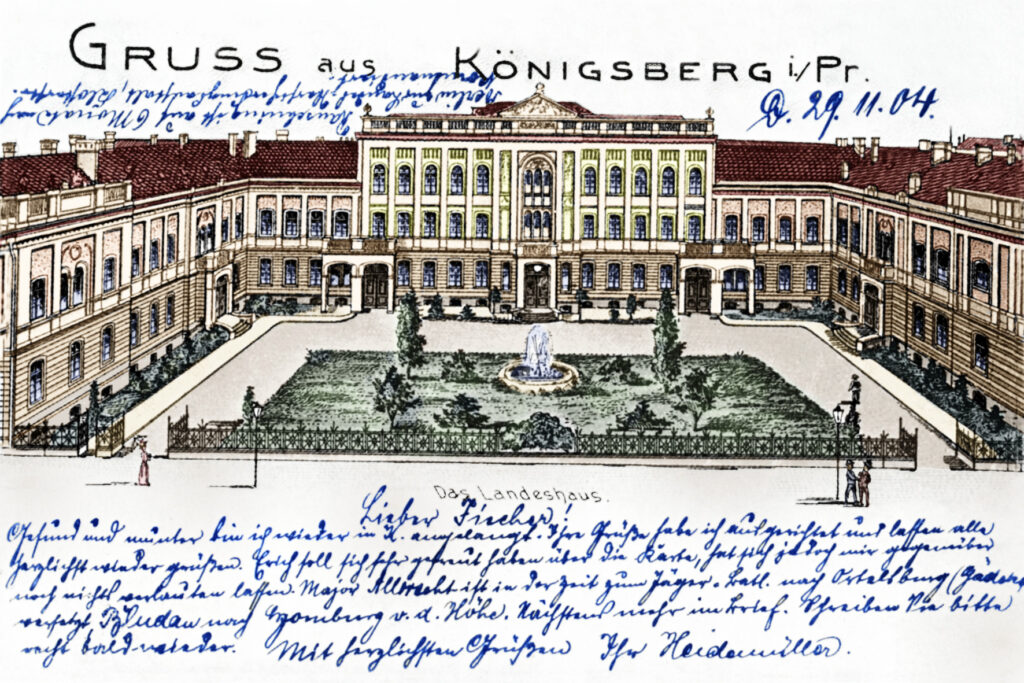 GRUSS aus KÖNIGSBERG i./Pr.
D. 29. 11. 04.
auf 6 Monate auf
Berlin
kommandiert.
Das Landeshaus.
Lieber Fischer!
Gesund und munter bin ich wieder in K. angelangt. Ihre Grüße habe ich aufgerichtet und lassen alle
herzlichst wieder grüßen. Erich soll sich sehr gefreut haben über die Karte, hat sich jedoch mir gegenüber
noch nichts verlauten lassen. Major Albrecht ist in der Zeit zum Jäger-Batl. nach Ortelsburg
versetzt Bludau nach Homburg v. d. Höhe. Nächstens mehr im Brief. Schreiben Sie bitte
recht bald wieder. Mit herzlichsten Grüßen Ihr Heidemüller.